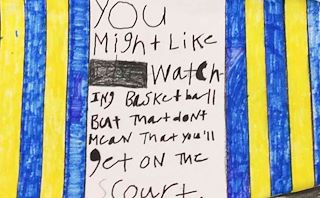 YOU
Might Like
Watch
Ing Basketball
But that dont
Mean That you'll
get on the
Scourt.